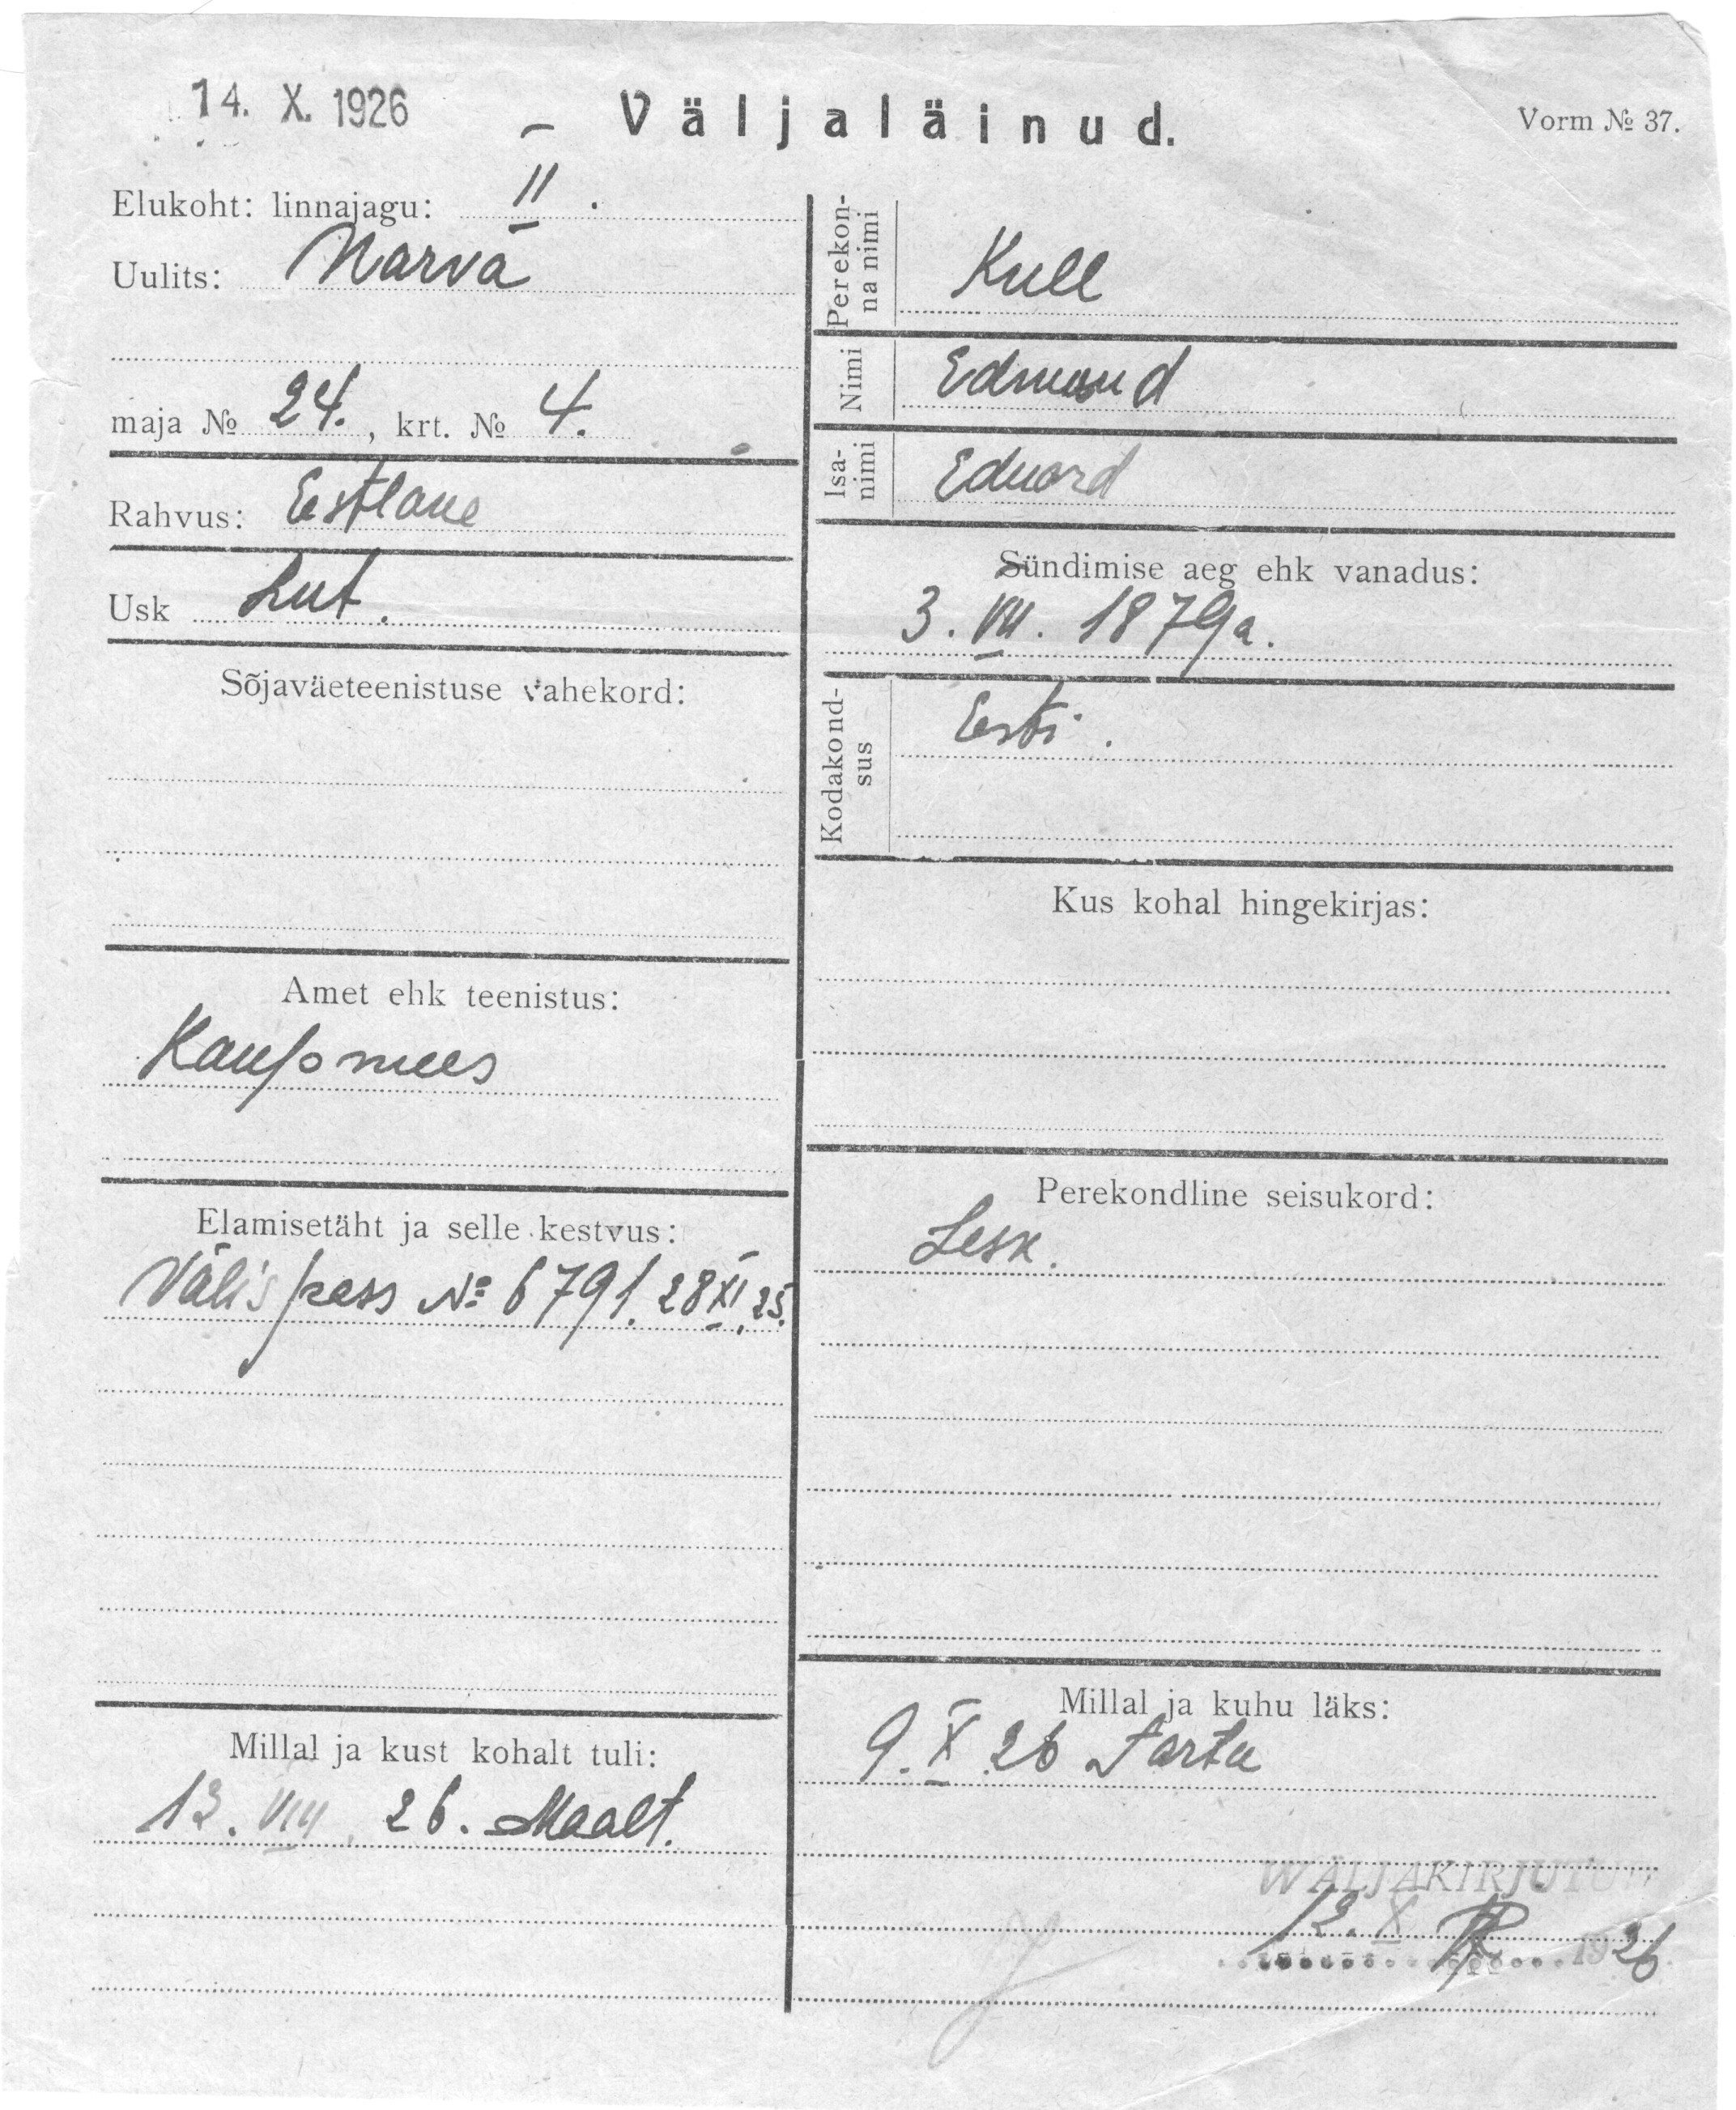 14. X. 1926
Väljaläinud.
Vorm № 37.
Elukoht: linnajagu: II.
Uulits: Narva
maja № 24., krt. № 4.
Rahvus: Eestlane
Usk Lut.
Sõjaväeteenistuse vahekord:
Amet ehk teenistus:
Kaupmees
Elamisetäht ja selle kestvus:
Välispass № 6791. 28 XI. 25.
Millal ja kust kohalt tuli:
13. VIII 26. Maalt.
Perekon-
na nimi
Kull
Nimi Edmund
Isa-
nimi
Eduard
Sündimise aeg ehk vanadus:
3. VII. 1879 a.
Kodakond-
sus
Eesti.
Kus kohal hingekirjas:
Perekondline seisukord:
Lesk.
Millal ja kuhu läks:
9. X 26 Tartu
WÄLJAKIRJUTUD
12. X 1926